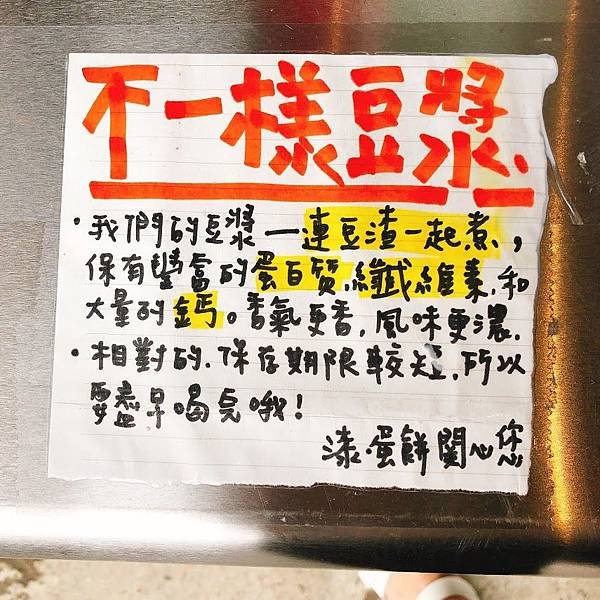 不一樣豆漿
·我們的豆漿一連豆渣一起煮,
保有豐富的蛋白質、纖維素,和
大量的鈣。香氣更香,風味更濃.
·相對的.保存期限較短,所以
要盡早喝完哦!
漆.蛋餅關心您